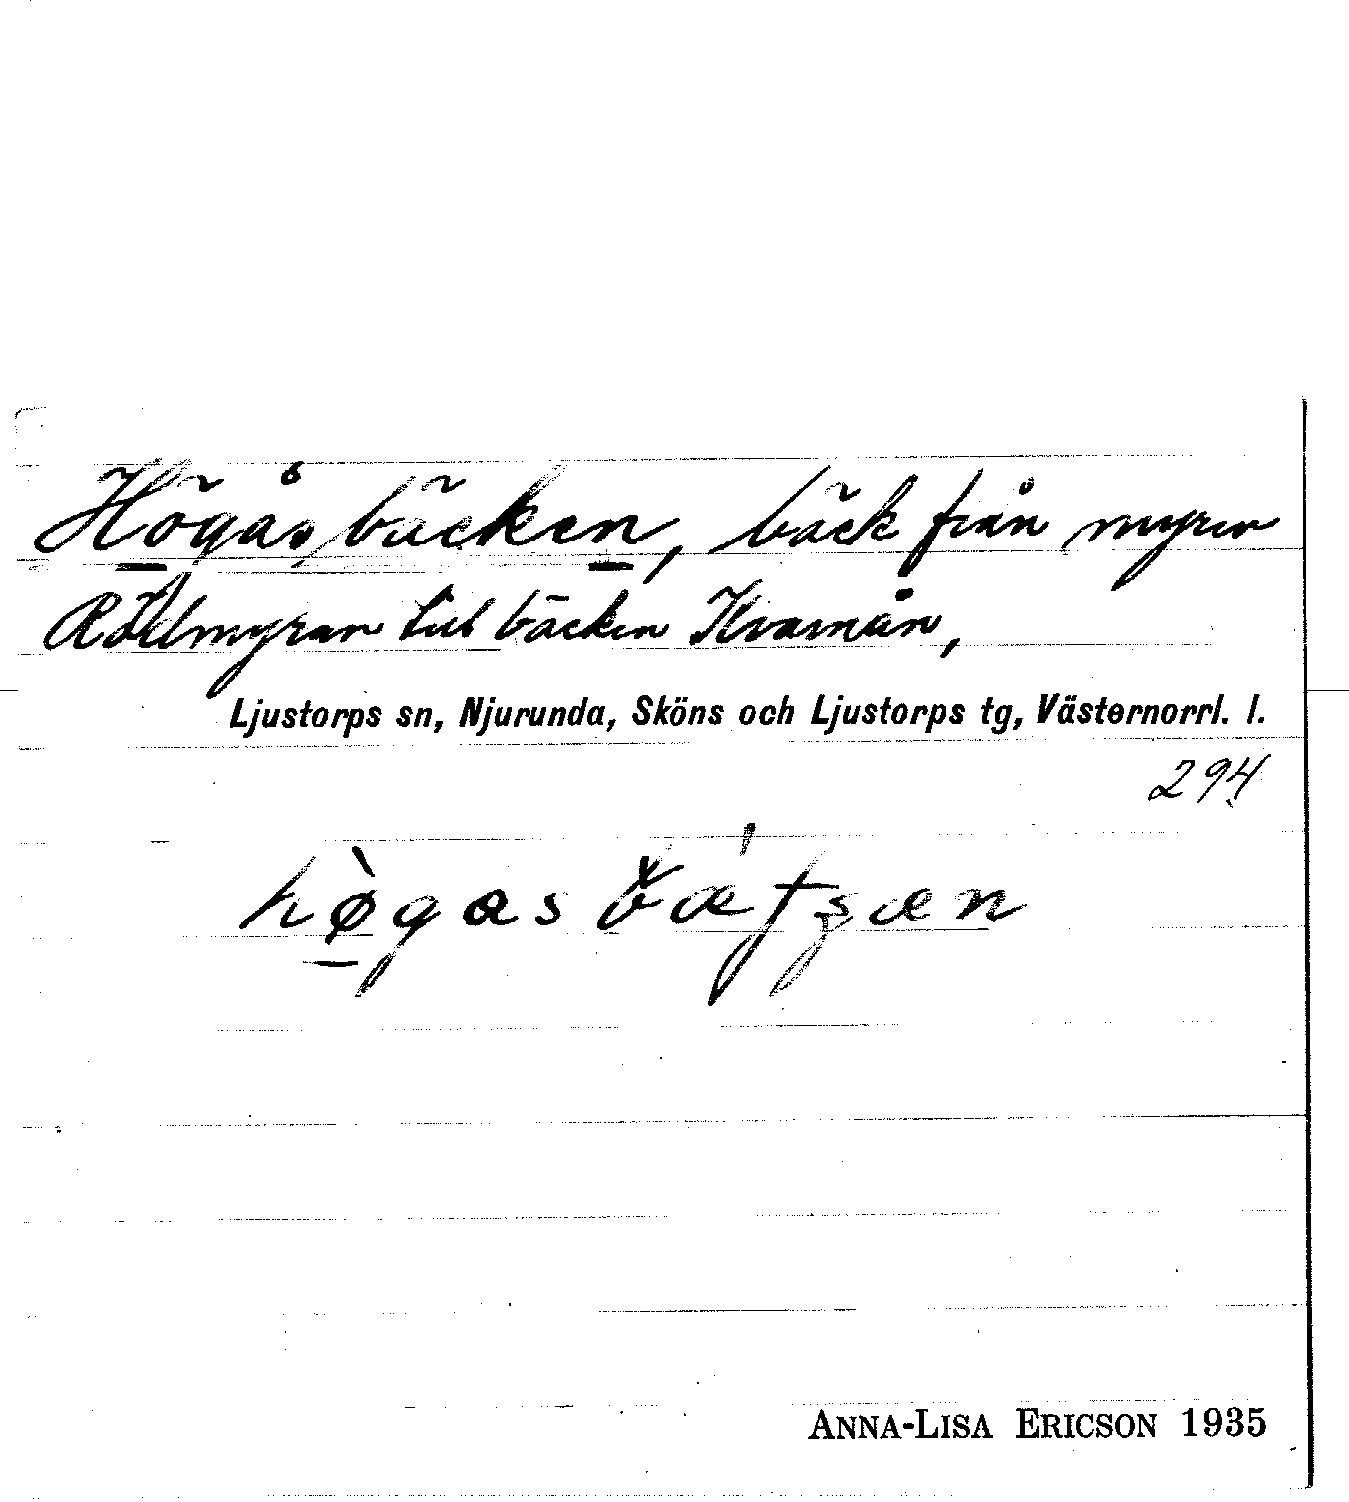 Högåsbäcken, bäck från myren
Rödmyran till bäcken Kvarnån,
Ljustorps sn, Njurunda, Sköns och Ljustorps tg, Västernorrl. l.
294
ANNA-LISA ERICSON 1935